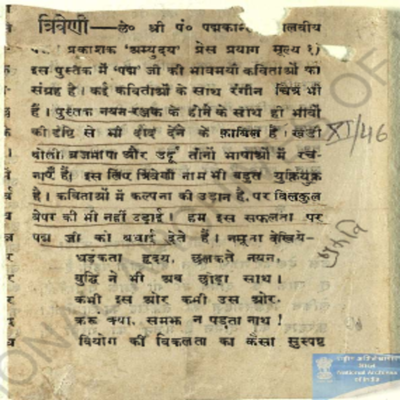 त्रिवेणी—ले० श्री पं० पद्मकान्त मालवीय
प्रकाशक 'अभ्युदय' प्रेस प्रयाग मूल्य १)
इस पुस्तक में 'पद्म' जी की भावमयी कविताओं का
संग्रह है। कई कविताओं के साथ रंगीन चित्र भी
हैं। पुस्तक नयन-रञ्जक के होने के साथ ही भावों
की दृष्टि से भी दाद देने के क़ाबिल है। खड़ी
बोली ब्रजभाषा और उर्दू तीनों भाषाओं में रच-
नाएँ हैं। इस लिए त्रिवेणी नाम भी बहुत युक्तियुक्त
है। कविताओं में कल्पना की उड़ान है, पर बिलकुल
बेपर की भी नहीं उड़ाई। हम इस सफलता पर
पद्म जी को बधाई देते हैं। नमूना देखिये-
धड़कता हृदय, छलकते नयन,
बुद्धि ने भी अब छोड़ा साथ।
कभी इस ओर कभी उस ओर,
करूँ क्या, समझ न पड़ता नाथ!
वियोग की विकलता का कैसा सुस्पष्ट
XI/46
राष्ट्रीय अभिलेखागार
National Archives